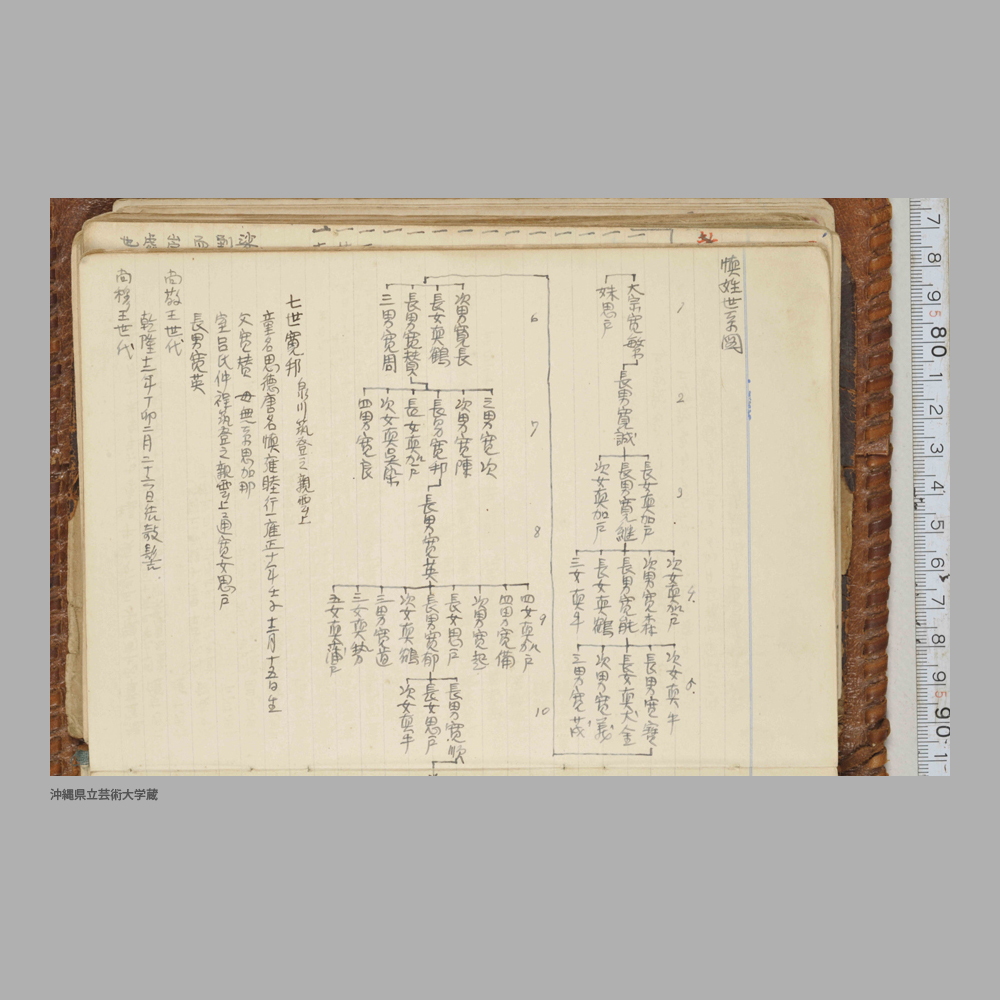 慎姓世系図
1
大宗寛繁
妹思戸
2
長男寛誠
3
長女真加戸
長男寛継
次女真加戸
次女真加戸
次男寛森
長男寛能
長女真鶴
三女真牛
5.
次女真牛
長男寛寳
長女真犬金
次男寛義
三男寛茂
6
次男寛長
長女真鶴
長男寛賛
三男寛周
7
三男寛次
次男寛陳
長男寛邦
長女真加戸
次女真呉勢
四男寛良
8
長男寛英
9
四女真加戸
四男寛備
次男寛
長女思戸
長男寛郁
次女真鶴
三男寛道
三女真勢
五女真蒲戸
10
長男寛順
長女思戸
次女真牛
七世寛邦 泉川筑登之親雲上
童名思徳唐名慎維睦行一雍正十年壬子十二月十五日生
父寛賛 母無系思加那
室呂氏仲村渠筑登之親雲上通寛女思戸
長男寛英
尚敬王世代
乾隆十二年丁卯二月二十六日結敧髻
尚穆王世代
7 8 9 5 80 1 2 3 4 5 6 7 8 9 5 90 1
沖縄県立芸術大学蔵